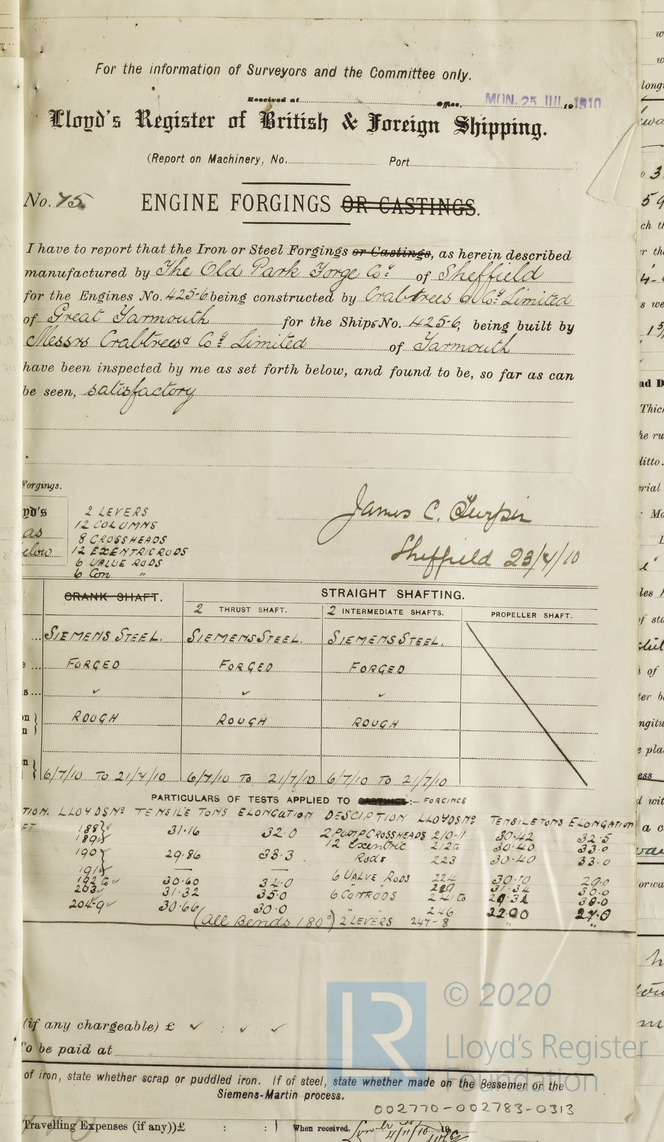 For the information of Surveyors and the Committee only.
Received at Office, MON. 25 JUL 1910
Lloyd's Register of British & Foreign Shipping.
(Report on Machinery, No. Port
No. 45 ENGINE FORGINGS OR CASTINGS.
I have to report that the Iron or Steel Forgings or Castings, as herein described
manufactured by The Old Park Forge Co. of Sheffield
for the Engines No. 425-6 being constructed by Crabtree & Co. Limited
of Great Yarmouth for the Ships No. 425-6, being built by
Messrs Crabtree & Co. Limited of Yarmouth
have been inspected by me as set forth below, and found to be, so far as can
be seen, satisfactory
Forgings.
2 LEVERS
12 COLUMNS
8 CROSSHEADS
12 EXENTRIC RODS
6 VALVE RODS
6 CON "
James C. Turpin
Sheffield 23/7/10
CRANK SHAFT. STRAIGHT SHAFTING.
2 THRUST SHAFT. 2 INTERMEDIATE SHAFTS. PROPELLER SHAFT.
SIEMENS STEEL. SIEMENS STEEL. SIEMENS STEEL.
FORGED FORGED FORGED
ROUGH ROUGH ROUGH
6/7/10 TO 21/7/10 6/7/10 TO 21/7/10 6/7/10 TO 21/7/10
PARTICULARS OF TESTS APPLIED TO CASTINGS:— FORGINGS
TION. LLOYDS No TENSILE TONS ELONGATION DESCIPTION LLOYDS No TENSILE TONS ELONGATION
188 31.16 32.0 2 PUMP CROSSHEADS 210-1 30.42 32.5
189 12 Exentric 30.40 33.0
190 29.86 33.3 Rods 223 30.40 33.0
191
30.60 32.0 6 VALVE RODS 224 30.70 29.0
203 31.32 35.0 229 31.34 30.0
204-9 30.66 30.0 6 CONRODS
246
(All Bends 180°) 2 LEVERS 247-8
(if any chargeable) £
To be paid at
of iron, state whether scrap or puddled iron. If of steel, state whether made on the Bessemer or the
Siemens-Martin process.
002770-002783-0313
Travelling Expenses (if any) £ : : When received, 19
© 2020
Lloyd's Register
Foundation